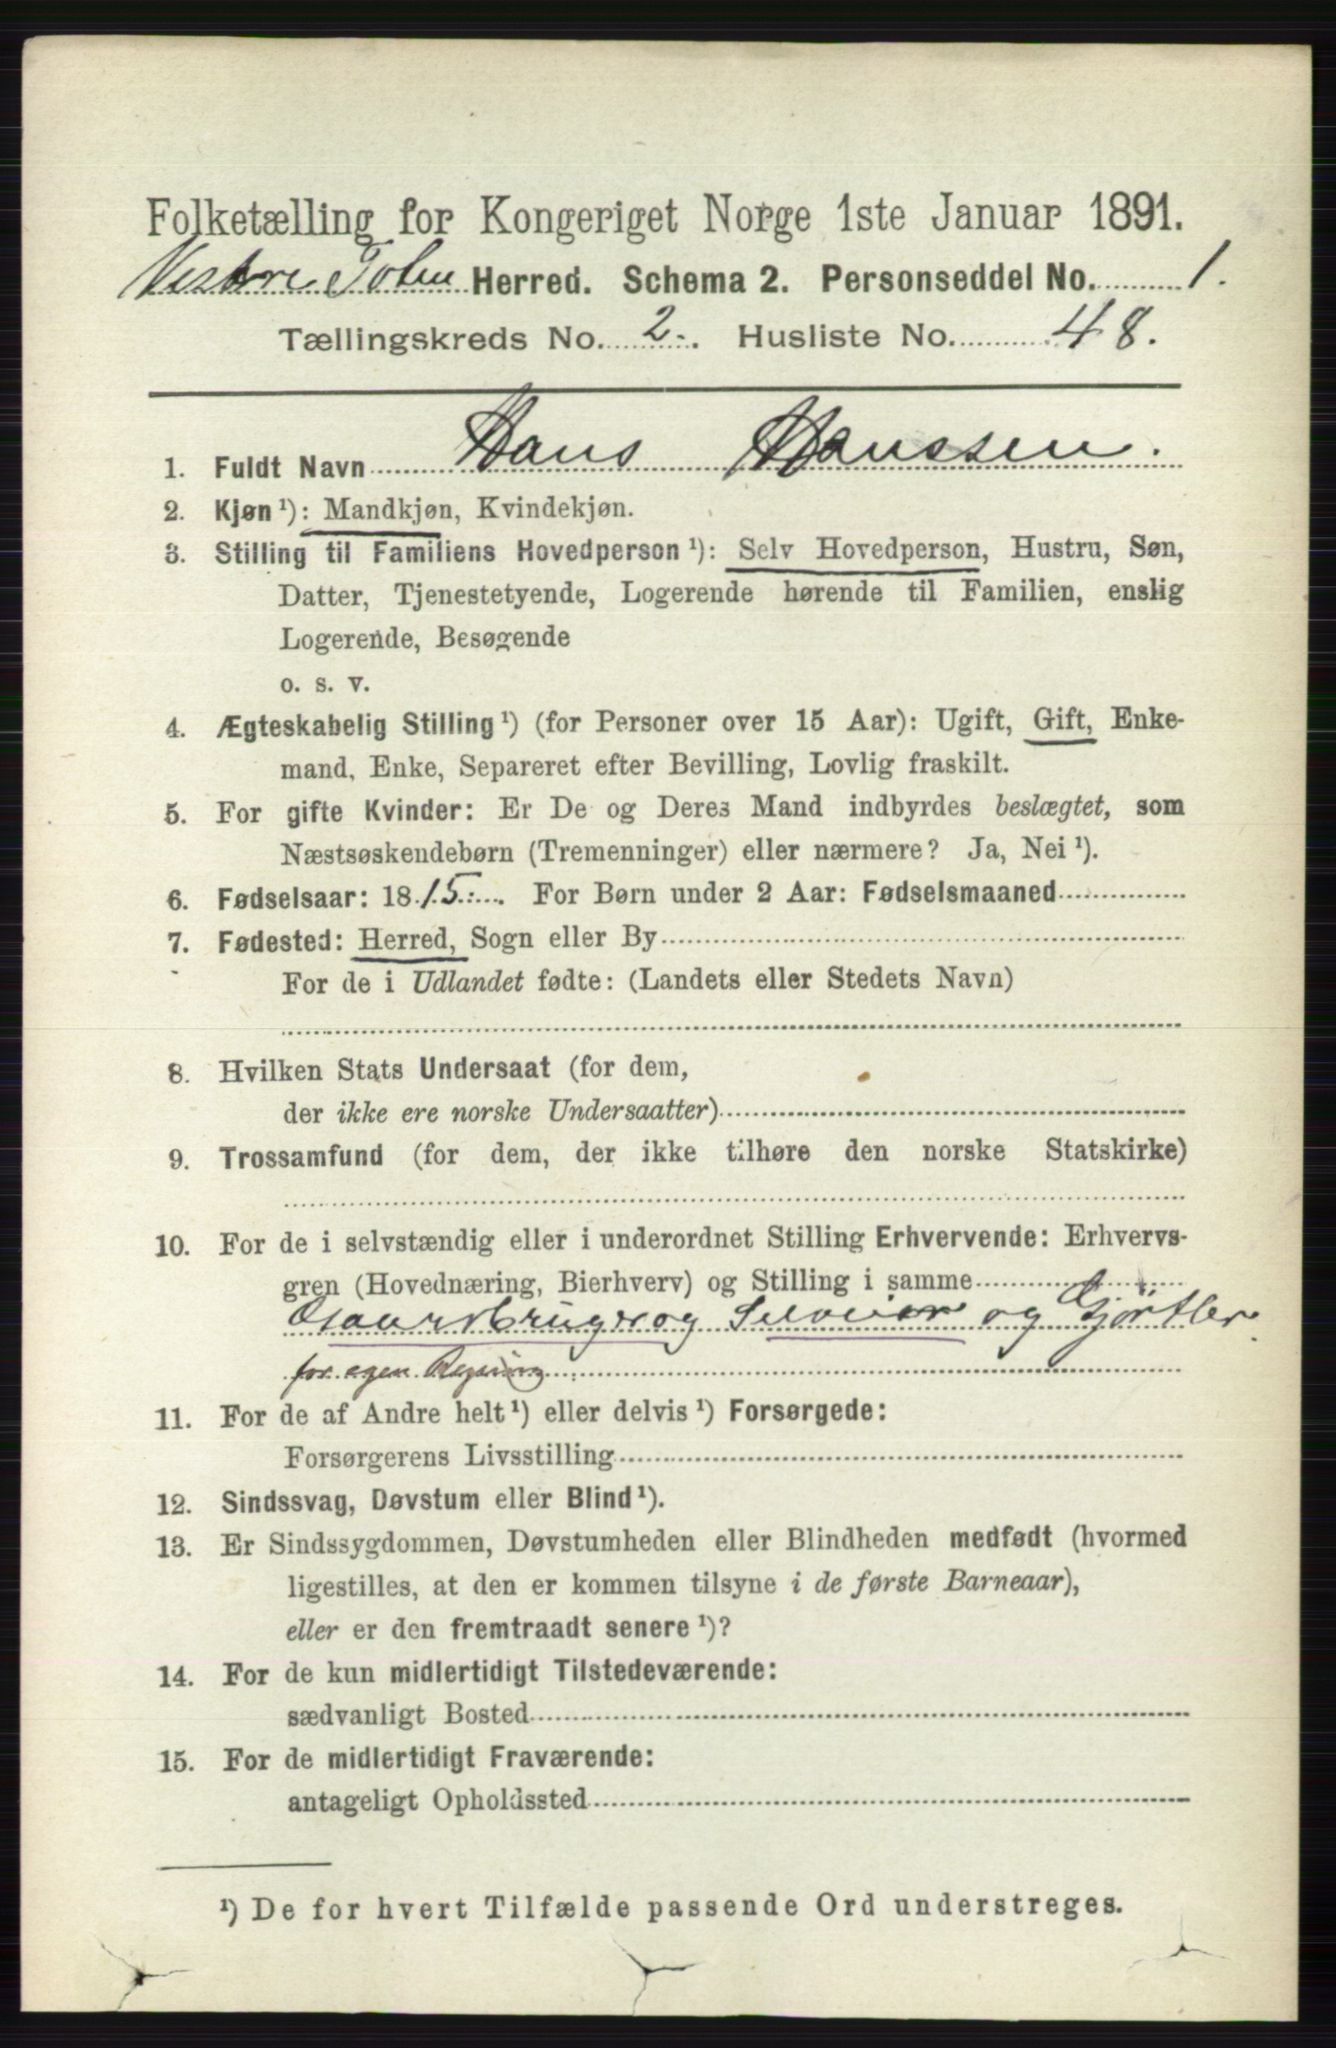 Folketælling for Kongeriget Norge 1ste Januar 1891.
Vestre Toten Herred. Schema 2. Personseddel No. 1.
Tællingskreds No. 2. Husliste No. 48.
1. Fuldt Navn Hans Hanssen.
2. Kjøn ¹): Mandkjøn, Kvindekjøn.
3. Stilling til Familiens Hovedperson ¹): Selv Hovedperson, Hustru, Søn,
Datter, Tjenestetyende, Logerende hørende til Familien, enslig
Logerende, Besøgende
o. s. v.
4. Ægteskabelig Stilling ¹) (for Personer over 15 Aar): Ugift, Gift, Enke-
mand, Enke, Separeret efter Bevilling, Lovlig fraskilt.
5. For gifte Kvinder: Er De og Deres Mand indbyrdes beslægtet, som
Næstsøskendebørn (Tremenninger) eller nærmere? Ja, Nei ¹).
6. Fødselsaar: 1815. For Børn under 2 Aar: Fødselsmaaned
7. Fødested: Herred, Sogn eller By
For de i Udlandet fødte: (Landets eller Stedets Navn)
8. Hvilken Stats Undersaat (for dem,
der ikke ere norske Undersaatter)
9. Trossamfund (for dem, der ikke tilhøre den norske Statskirke)
10. For de i selvstændig eller i underordnet Stilling Erhvervende: Erhvervs-
gren (Hovednæring, Bierhverv) og Stilling i samme
Gaardbruger og Selveier og Gjørtler
for egen Regning
11. For de af Andre helt ¹) eller delvis ¹) Forsørgede:
Forsørgerens Livsstilling
12. Sindssvag, Døvstum eller Blind ¹).
13. Er Sindssygdommen, Døvstumheden eller Blindheden medfødt (hvormed
ligestilles, at den er kommen tilsyne i de første Barneaar),
eller er den fremtraadt senere ¹)?
14. For de kun midlertidigt Tilstedeværende:
sædvanligt Bosted
15. For de midlertidigt Fraværende:
antageligt Opholdssted
¹) De for hvert Tilfælde passende Ord understreges.